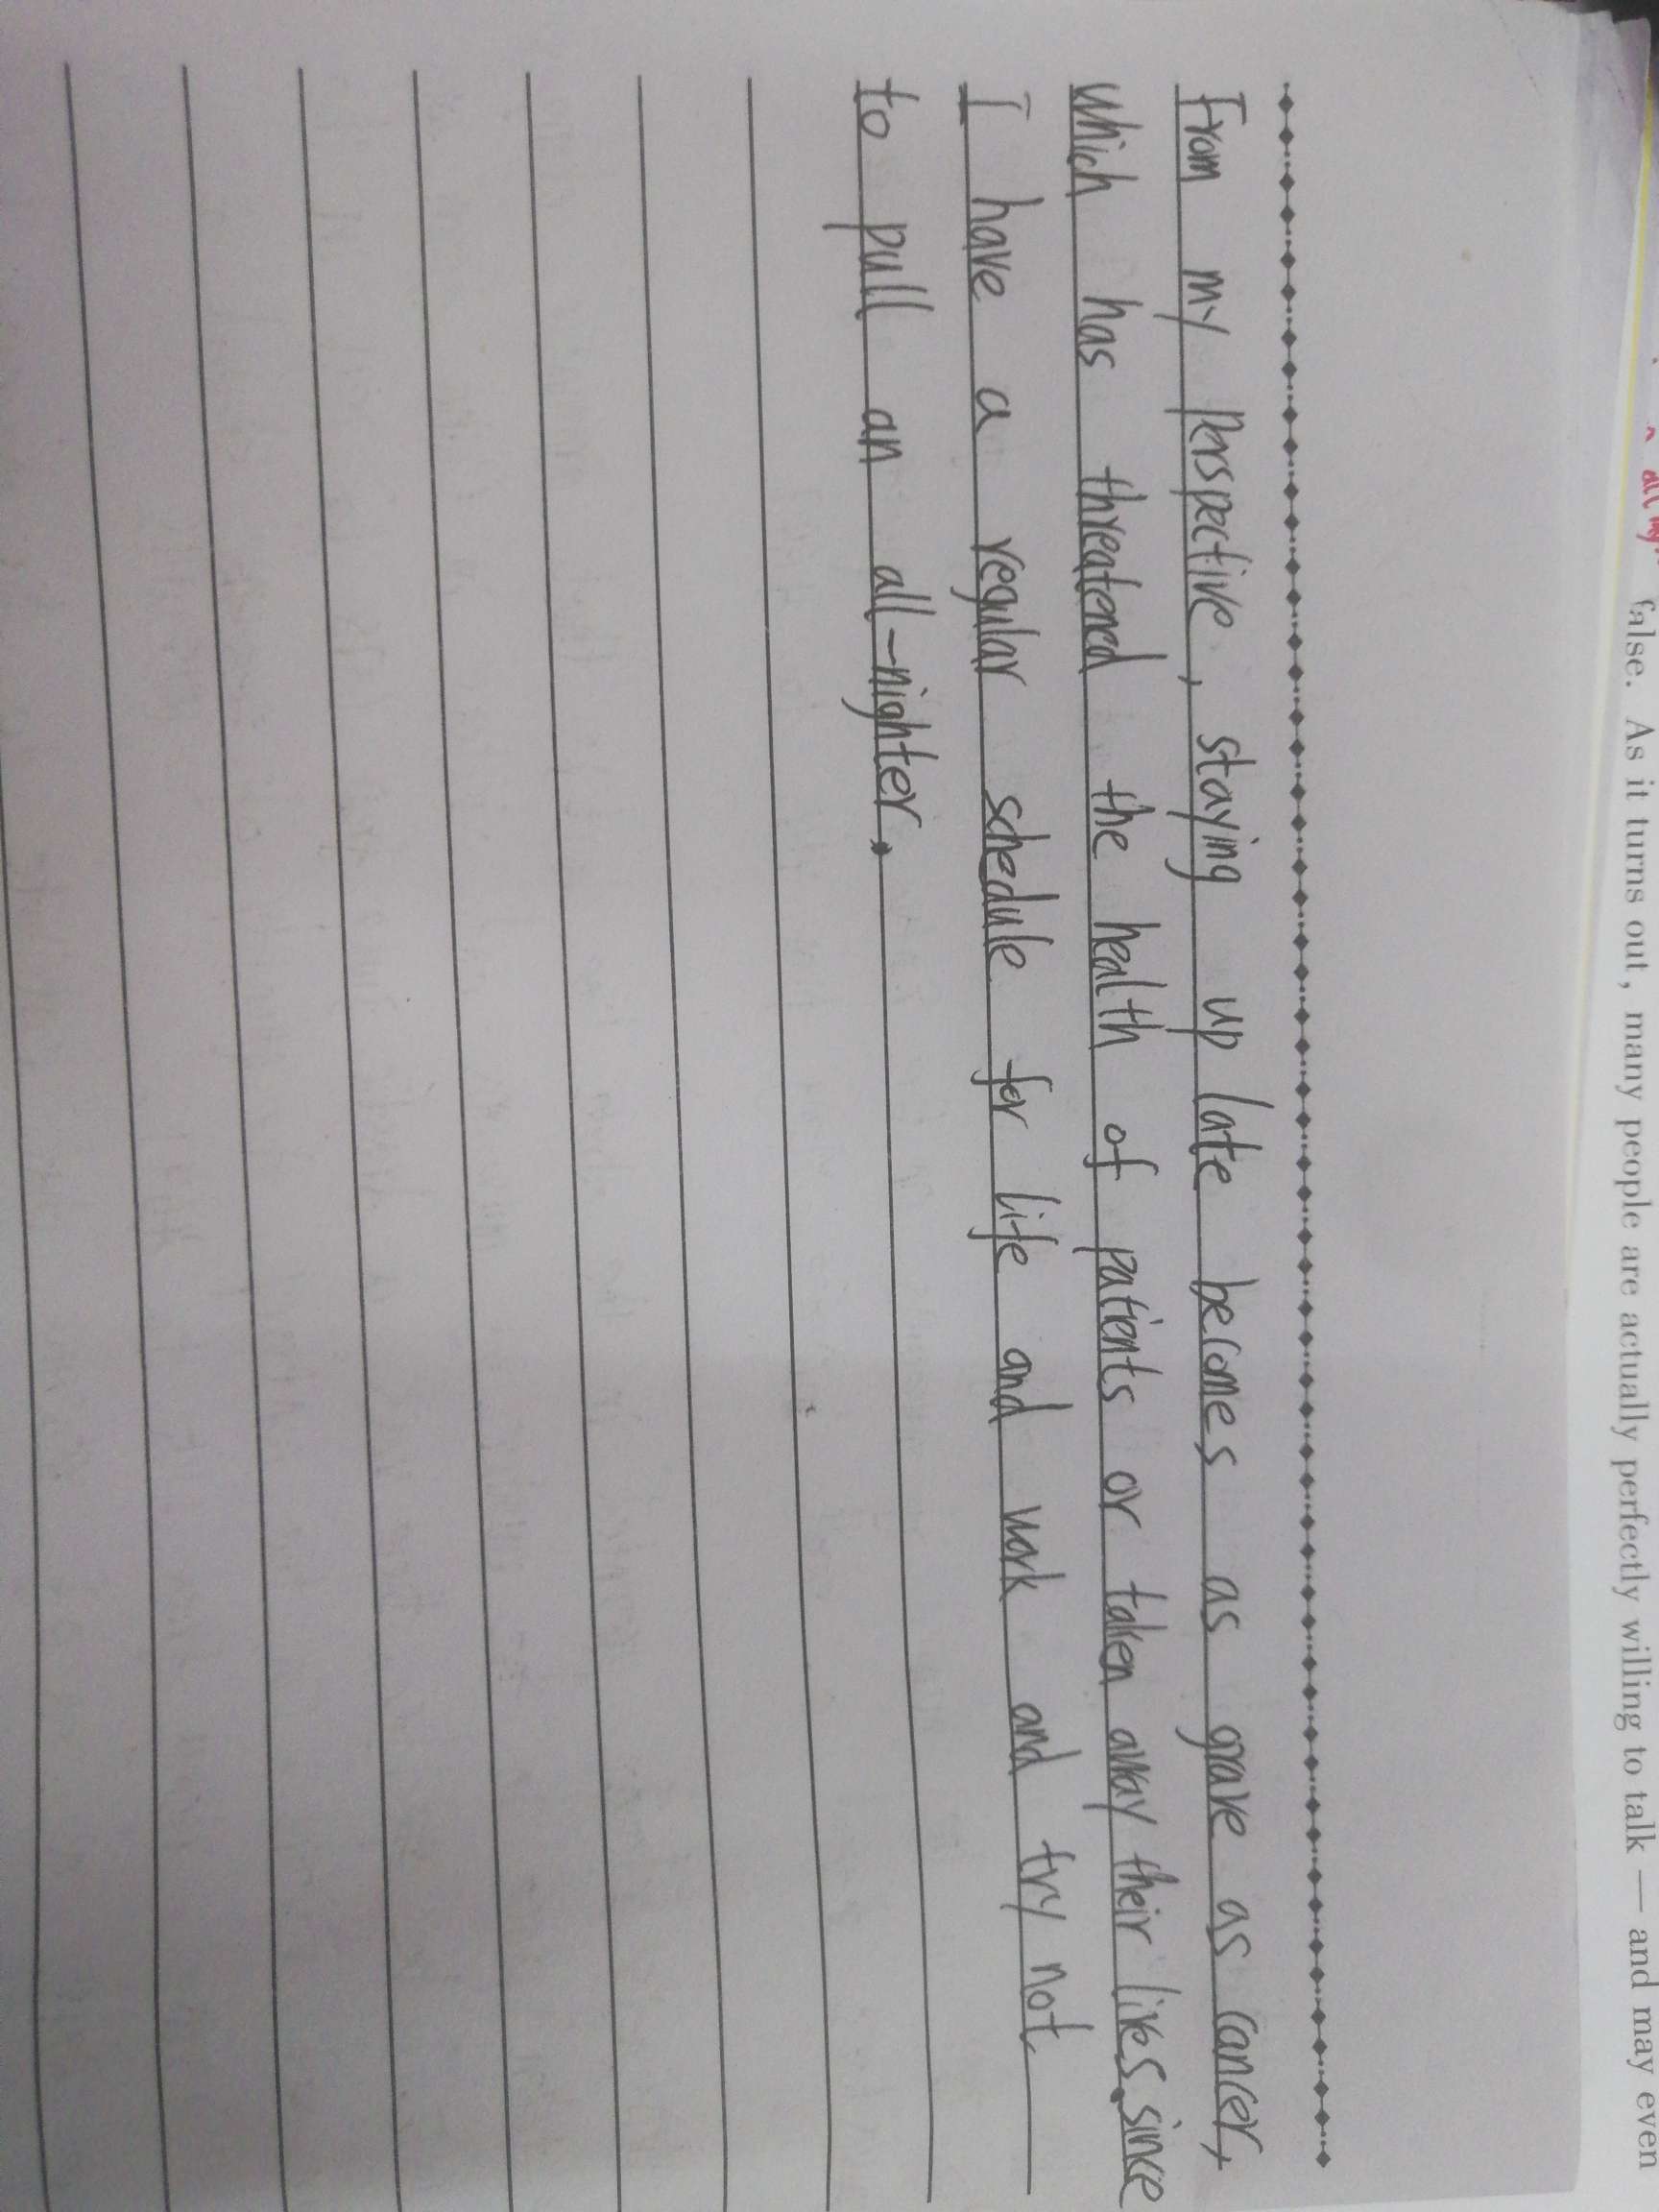 false. As it turns out, many people are actually perfectly willing to talk — and may even
From my perspective, staying up late becomes as grave as cancer,
which has threatened the health of patients or taken away their lives. since
I have a regular schedule for life and work and try not
to pull an all-nighter.